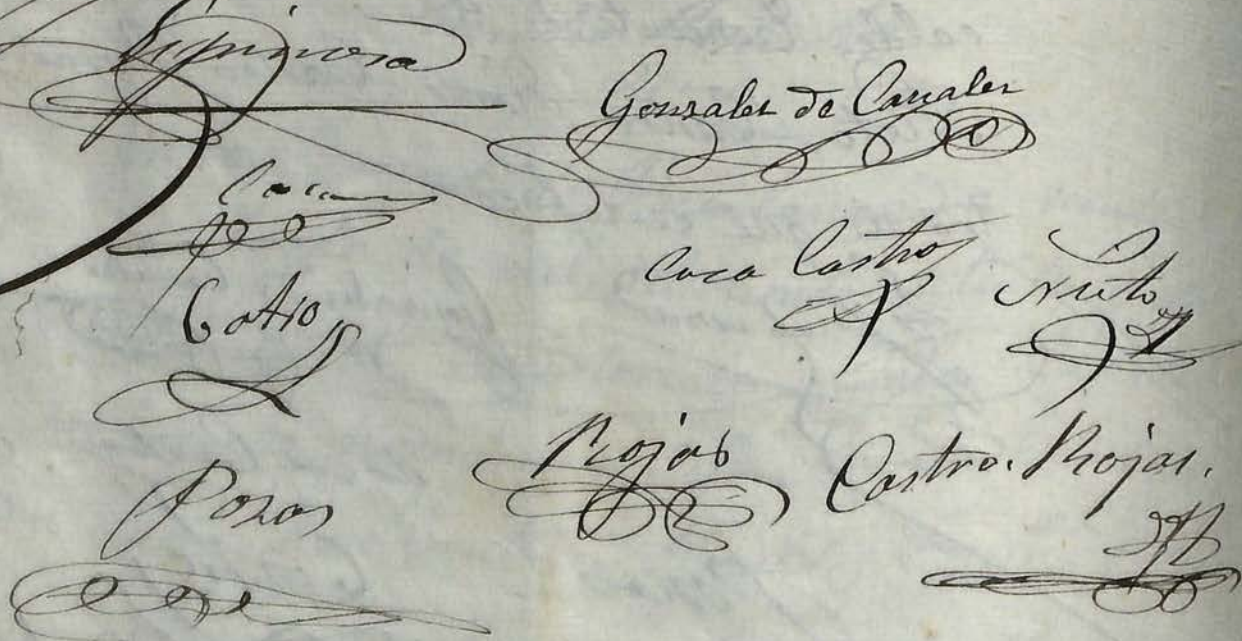 Espinosa
Gonzales de Canales
Coca Castro
Nieto
Rojas
Castro. Rojas.
Pozas